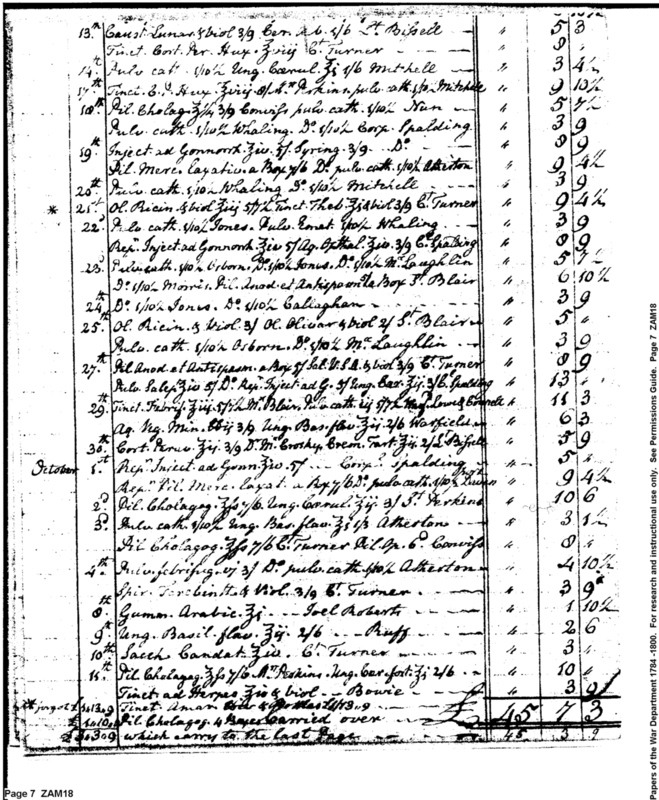 13th Caust. Lunar. & viol 3/9 Cer. 1/6 Lt. Bissell — " 5 3
Tinct. Cort. Per. Hux. Ct. Turner " 8 "
14th Pulv cath. 1/10½ Ung. Cærul. Zj 1/6 Mitchell " 3 4½
17th Tinct. C. P. Hux. Perkins, pulv. cath. 1/10½ Mitchell " 9 10½
18th Pil. Cholag. 3/9 Conviss pulv. cath. 1/10½ Nun — " 5 7½
Pulv. cath. 1/10½ Whaling Do. 1/10½ Corp. Spalding " 3 9
19th Inject. ad Gonnorh. Ziv. 5/ Syring. 3/9 Do. " 8 9
Pil. Merc. laxativ. a Box 7/6 Do. pulv. cath. 1/10½ Atherton " 9 4½
20th Pulv. cath. 1/10½ Whaling Do. 1/10½ Mitchell " 3 9
* 21st Ol. Ricin. & viol Tinct. Theb. & viol 3/9 Ct. Turner " 9 4½
22d Pulv cath. 1/10½ Jones. Pulv. Emet. 1/10½ Whaling " 3 9
Rep. Inject ad Gonnorh. Ziv 5/ Aq. Opthal. Ziv. 3/9 Cp. Spalding " 8 9
23d Pulv. cath. 1/10½ Osborn. Do. 1/10½ Jones. Do. 1/10½ Mc. Laughlin " 5 7½
Do. 1/10½ Morris. Pil. Anod. et Antispasm. a Box St. Blair " 6 10½
24th Do. 1/10½ Jones. Do. 1/10½ Callaghan " 3 9
25th Ol. Ricin. & viol. 3/ Ol. Olivar & viol 2/ St. Blair " 5 "
Pulv. cath. 1/10½ Osborn. Do. 1/10½ Mc. Laughlin " 3 9
27th Pil. Anod et Antispasm. a Box 5/ Sal. & viol 3/9 Ct. Turner " 8 9
Pulv. Salep. Ziv 5/ Do. Rep. Inject ad G. 5/ Ung. 3/ Cp. Spalding " 13 "
29th Tinct. Febrif. 5/7½ Mr. Blair. Pulv cath. iij 5/7½ Lowe & " 11 3
Aq. Veg. Min. 3/9 Ung. Bas. flav. Zij 2/6 Warfield " 6 3
30th Cort. Peruv. Zij 3/9 Dr. McCrosky. Crem. Tart Zij. 2/ Lt Bissell " 5 9
October 1st Rep. Inject. ad Gonn. Ziv. 5/ Corpl. Spalding " 5 "
Rep. Pil. Merc. Laxat. a Box 7/6 Do. pulv. cath. 1/10½ " 9 4½
2d Pil. Cholagog. Zfs 7/6. Ung. Cærul. Zij. 3/ St. Perkins " 10 6
3d Pulv cath. 1/10½ Ung. Bas. flav. Zj 1/3 Atherton " 3 1½
Pil Cholagog. Zfs 7/6 Ct. Turner Pil Op. 6d Conviss " 8 "
4th Pulv. febrifug. 3/ Do. pulv. cath. 1/10½ Atherton " 4 10½
Spir. Terebinth & Viol. 3/9 Ct. Turner " 3 9
8th Gumm. Arabic. Zj Joel Roberts " 1 10½
9th Ung. Basil. flav. Zij. 2/6 Ruff " 2 6
10th Sacch Candat. Ziv. Ct. Turner " 3 "
11th Pil Cholagog. Zfs 7/6 Mr. Perkins. Ung. fort. Zj 2/6 " 10 "
Tinct. ad Herpes Ziv & viol Bowie " 3 9
* forgot Tinct. Amar.
Pil Cholagog 4 Boxes Carried over £ 45 7 3
which carry to the last Page 45 3 9
Page 7 ZAM18
Papers of the War Department 1784 -1800. For research and instructional use only. See Permissions Guide. Page 7 ZAM18